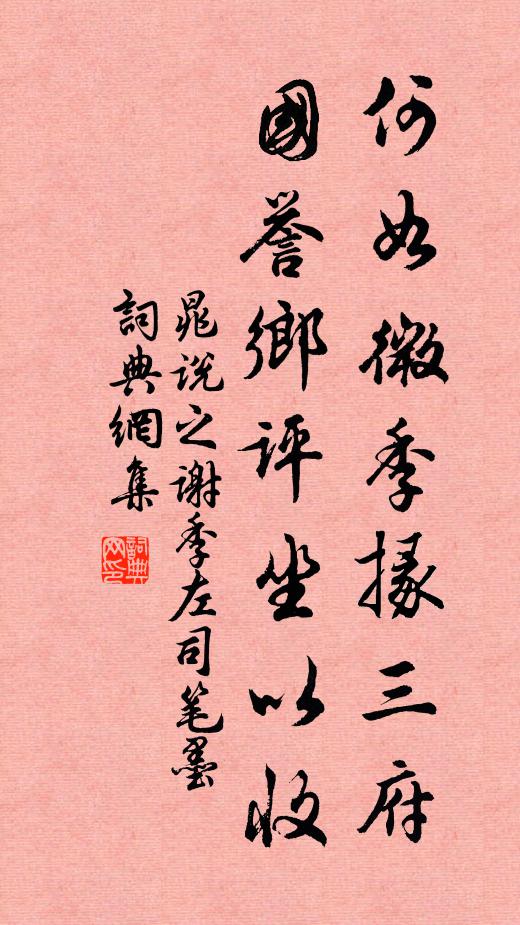 何如微季掾三府
國誉鄉评坐以收
晁说之谢季左司笔墨
詞典網集
詞典网印